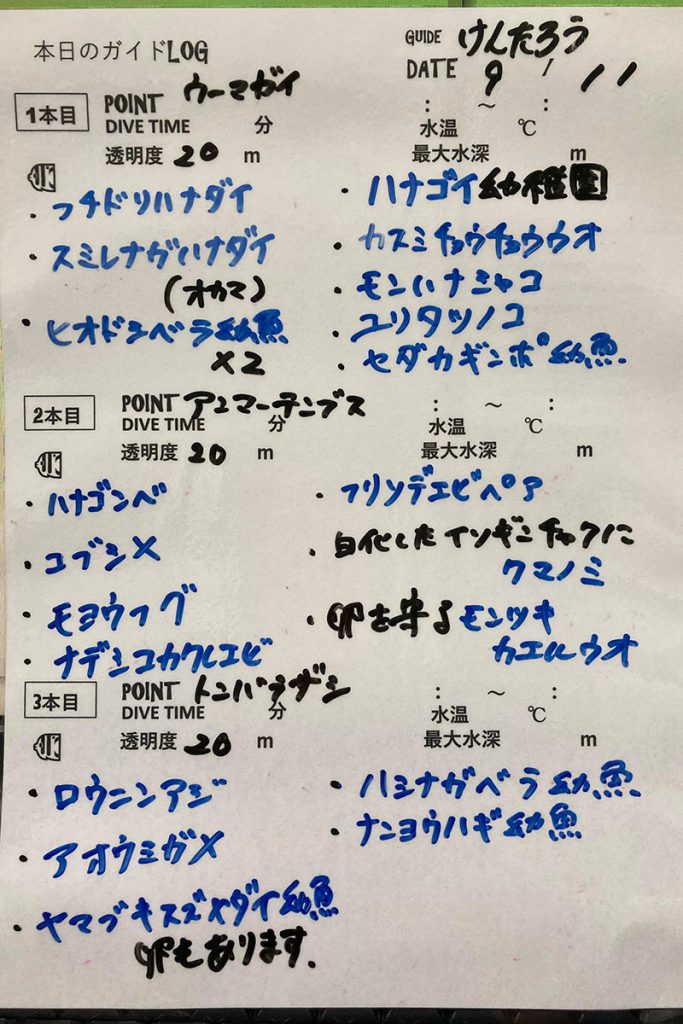 本日のガイドLOG
GUIDE けんたろう
DATE 9 / 11
1本目
POINT ウーマガイ
DIVE TIME 分
: ～ :
水温 ℃
透明度 20 m
最大水深 m
・フチドリハナダイ
・スミレナガハナダイ
(オカマ)
・ヒオドシベラ幼魚
×2
・ハナゴイ幼稚園
・カスミチョウチョウウオ
・モンハナシャコ
・ユリタツノコ
・セダカギンポ幼魚
2本目
POINT アンマーテンブス
DIVE TIME 分
: ～ :
水温 ℃
透明度 20 m
最大水深 m
・ハナゴンベ
・コブシメ
・モヨウフグ
・ナデシコカクレエビ
・フリソデエビペア
・白化したイソギンチャクに
クマノミ
・卵を守るモンツキ
カエルウオ
3本目
POINT トンバラザシ
DIVE TIME 分
: ～ :
水温 ℃
透明度 20 m
最大水深 m
・ロウニンアジ
・アオウミガメ
・ヤマブキスズメダイ幼魚
卵もあります.
・ハシナガベラ幼魚
・ナンヨウハギ幼魚